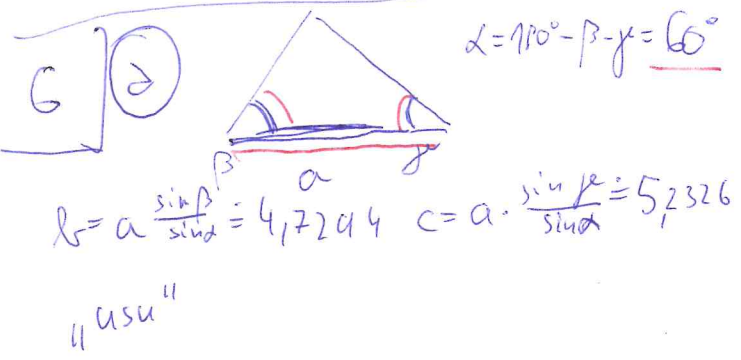 6 a
α=180°-β-γ=60°
β a γ
b=a sinβ/sinα ≐ 4,7294 c=a· sinγ/sinα ≐ 5,2326
„usu"